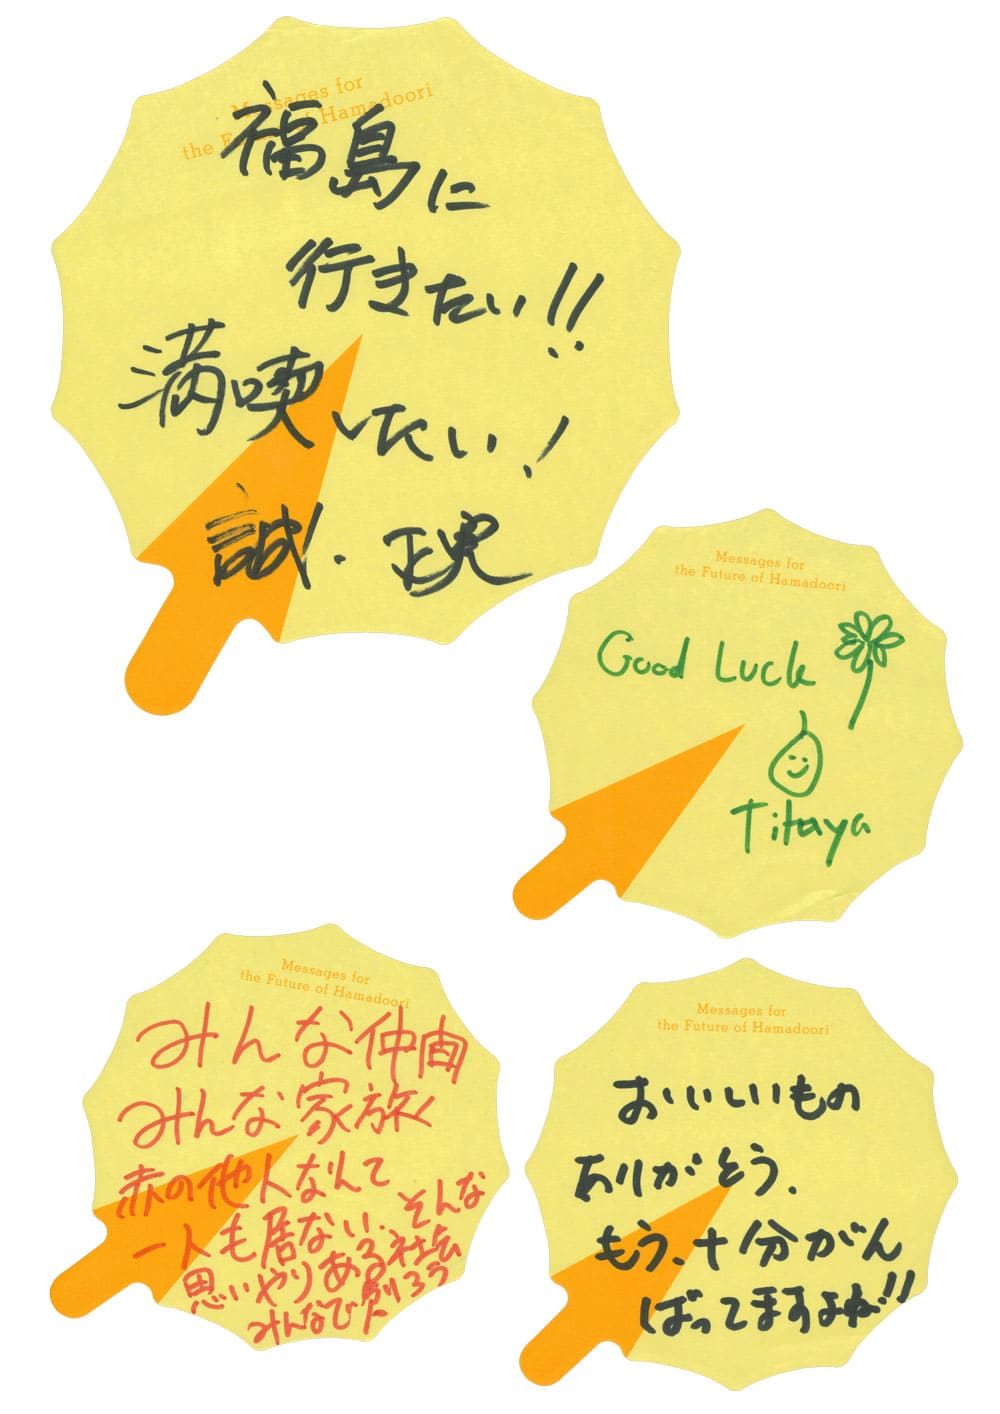 Messages for
the Future of Hamadoori
福島に
行きたい!!
満喫したい!
誠.
Messages for
the Future of Hamadoori
Good Luck
Titaya
Messages for
the Future of Hamadoori
みんな仲間
みんな家族
赤の他人なんて
一人も居ない.そんな
思いやりある社会
みんなで創ろう
Messages for
the Future of Hamadoori
おいしいもの
ありがとう.
もう、十分がん
ばってますよね!!